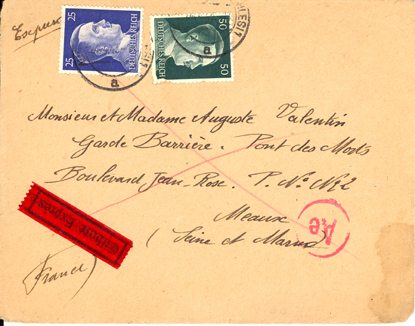 Exprès
25 25
DEUTSCHES REICH
50 50
DEUTSCHES REICH
a
a
Monsieur et Madame Auguste Valentin
Garde Barrière. Pont des Morts
Boulevard Jean-Rose. P. N. N° 2
Meaux
(Seine et Marne)
Eilbote Exprès
Ae
(France)